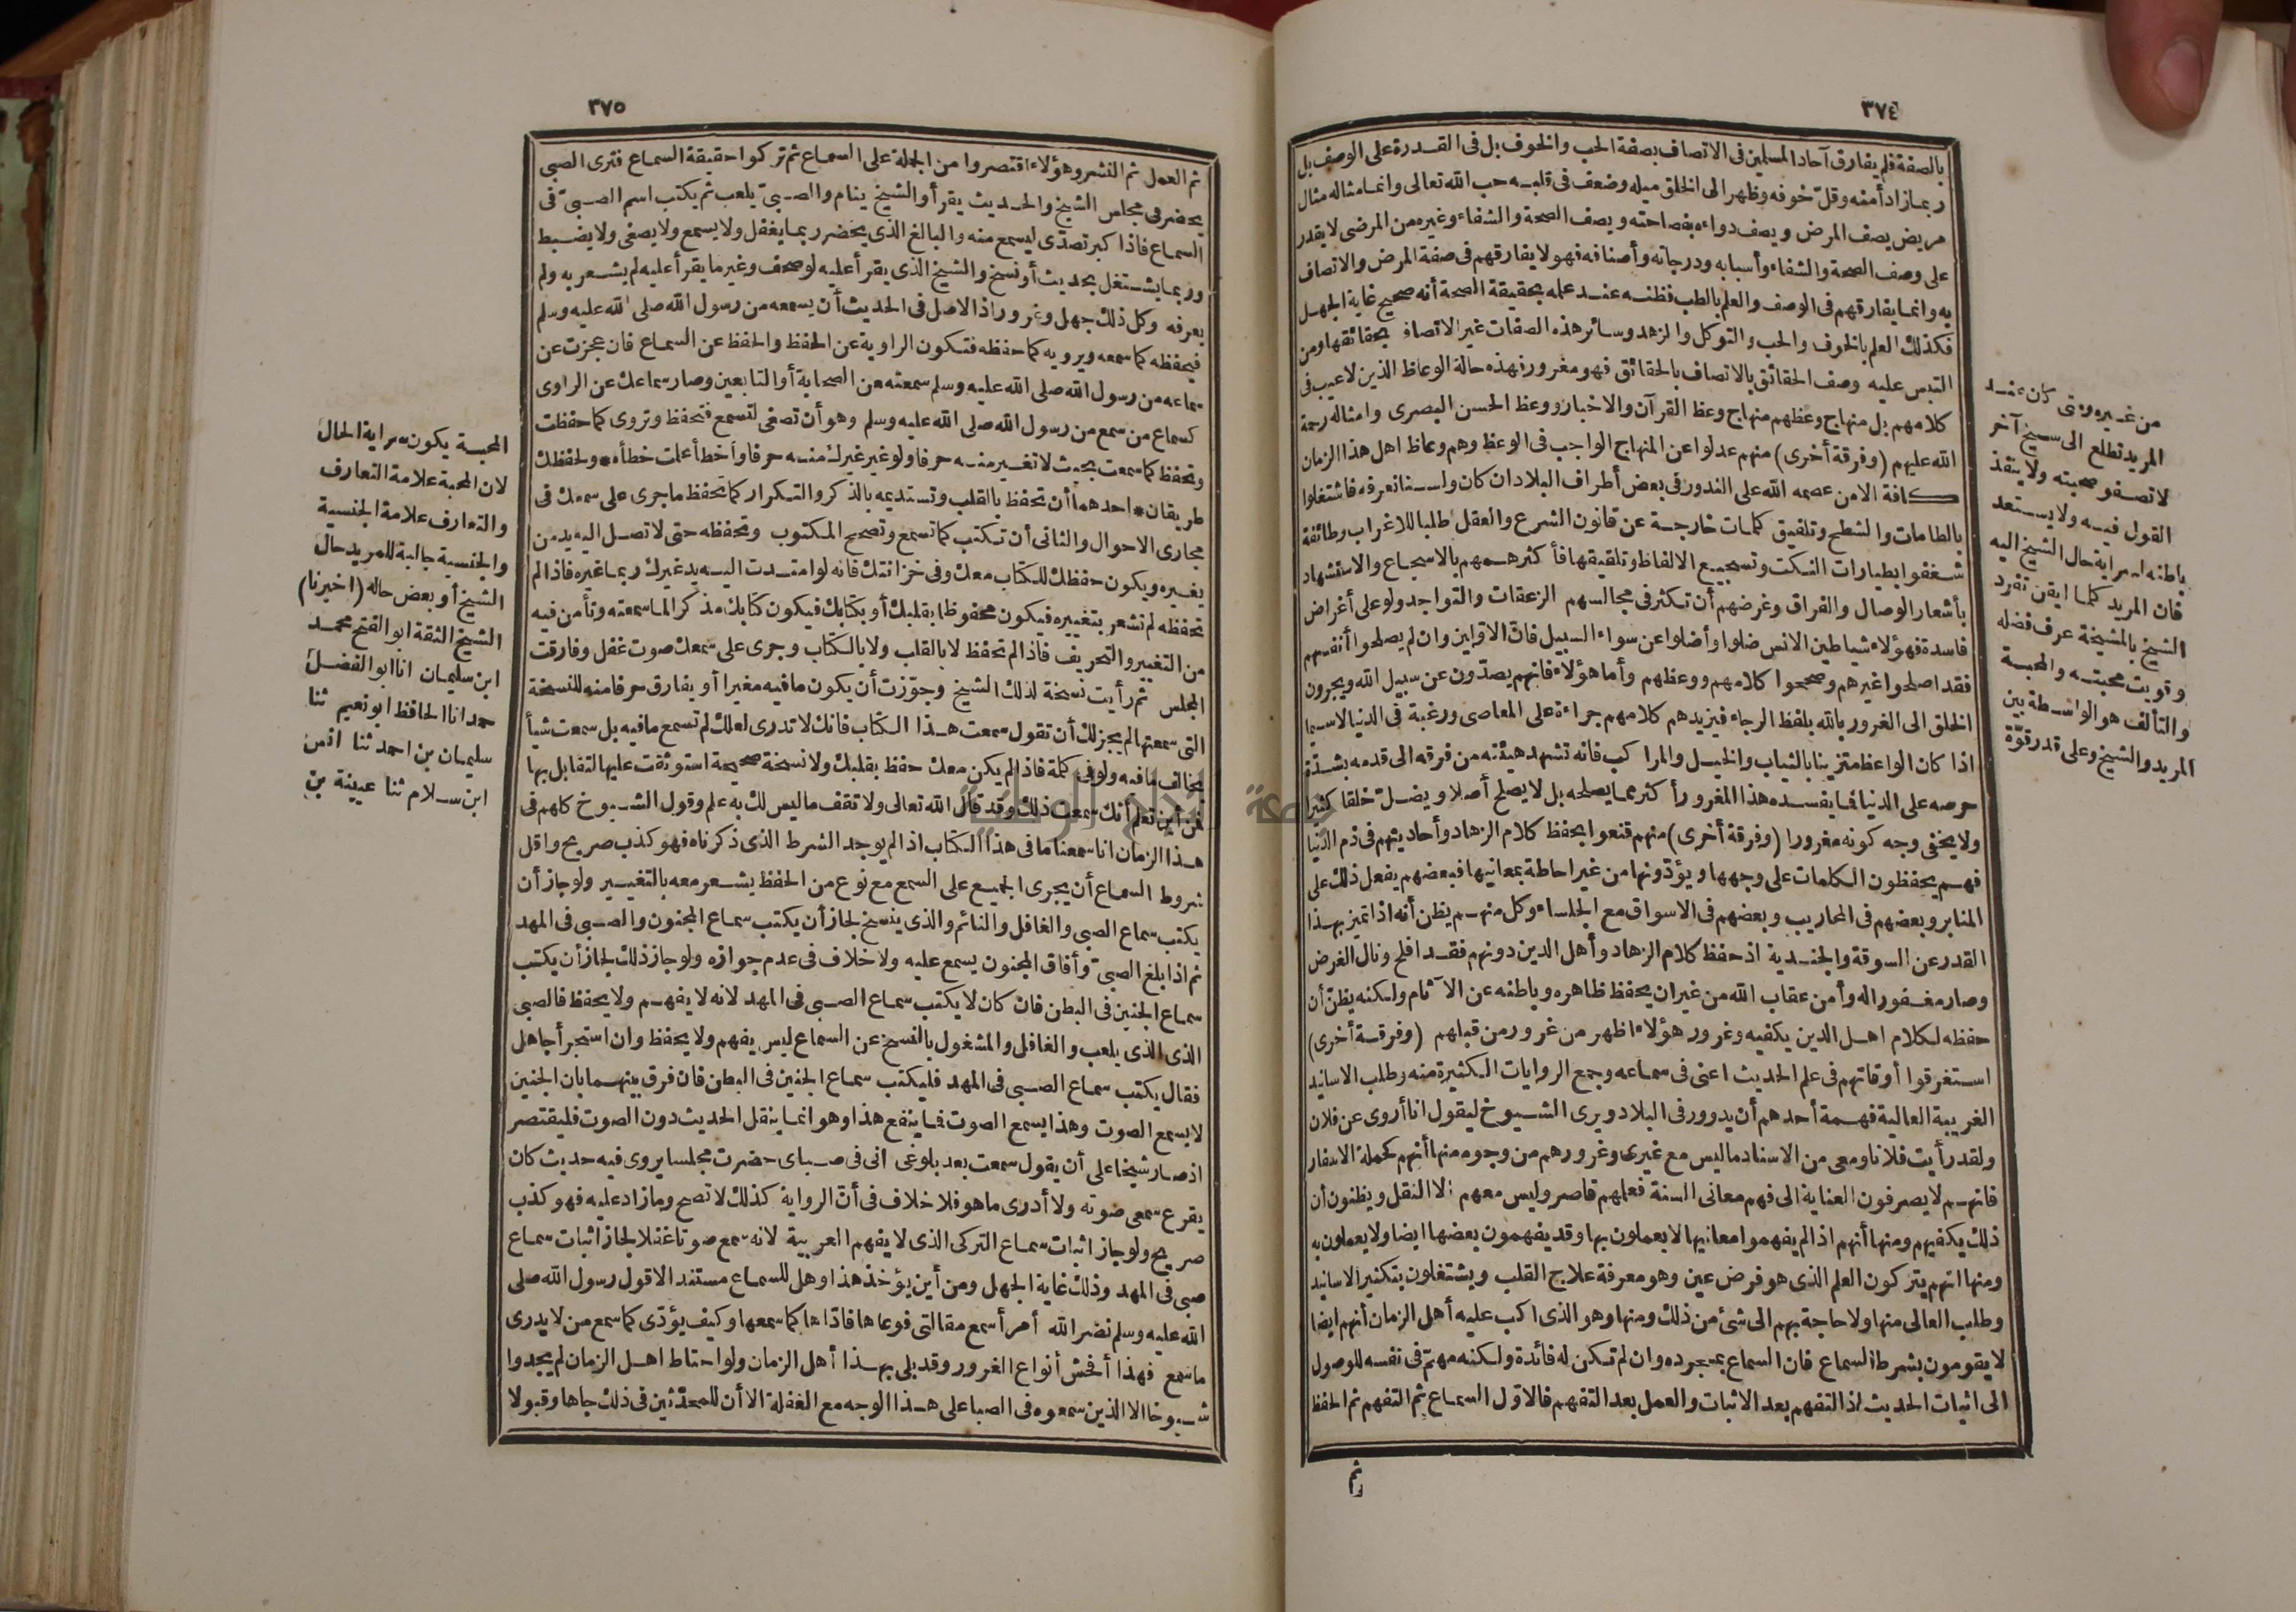 ٣٧٤
بالصفة فلم يفارق آحاد المسلمين فى الاتصاف بصفة الحب والخوف بل فى القدرة على الوصف بل
ربما زاد أمنه وقلّ خوفه وظهر الى الخلق ميله وضعف فى قلبه حب الله تعالى وانما مثاله مثال
مريض يصف المرض ويصف دواءه بفصاحته ويصف الصحة والشفاء وغيره من المرضى لا يقدر
على وصف الصحة والشفاء وأسبابه ودرجاته وأصنافه فهو لا يفارقهم فى صفة المرض والاتصاف
به وانما يفارقهم فى الوصف والعلم بالطب فظنه عند علمه بحقيقة الصحة أنه صحيح غاية الجهل
فكذلك العلم بالخوف والحب والتوكل والزهد وسائر هذه الصفات غير الاتصاف بحقائقها ومن
التبس عليه وصف الحقائق بالاتصاف بالحقائق فهو مغرور فهذه حالة الوعاظ الذين لا عيب فى
كلامهم بل منهاج وعظهم منهاج وعظ القرآن والاخبار ووعظ الحسن البصرى وامثاله رحمة
الله عليهم (وفرقة أخرى) منهم عدلوا عن المنهاج الواجب فى الوعظ وهم وعاظ اهل هذا الزمان
كافة الا من عصمه الله على الندور فى بعض أطراف البلاد ان كان ولسنا نعرفه فاشتغلوا
بالطامات والشطح وتلفيق كلمات خارجة عن قانون الشرع والعقل طلبا للاغراب وطائفة
شغفوا بطيارات النكت وتسجيع الالفاظ وتلفيقها فأكثر هممهم بالاسجاع والاستشهاد
بأشعار الوصال والفراق وغرضهم أن تكثر فى مجالسهم الزعقات والتواجد ولو على أغراض
فاسدة فهؤلاء شياطين الانس ضلوا وأضلوا عن سواء السبيل فان الاولين وان لم يصلحوا أنفسهم
فقد اصلحوا غيرهم وصححوا كلامهم ووعظهم وأما هؤلاء فانهم يصدّون عن سبيل الله ويجرون
الخلق الى الغرور بالله بلفظ الرجاء فيزيدهم كلامهم جراءة على المعاصى ورغبة فى الدنيا لاسيما
اذا كان الواعظ متزينا بالثياب والخيل والمراكب فانه تشهد هيئته من فرقه الى قدمه بشدّة
حرصه على الدنيا فما يفسده هذا المغرور أكثر مما يصلحه بل لا يصلح أصلا ويضلّ خلقا كثيرا
ولا يخفى وجه كونه مغرورا (وفرقة أخرى) منهم قنعوا بحفظ كلام الزهاد وأحاديثهم فى ذم الدنيا
فهم يحفظون الكلمات على وجهها ويؤدّونها من غير احاطة بمعانيها فبعضهم يفعل ذلك على
المنابر وبعضهم فى المحاريب وبعضهم فى الاسواق مع الجلساء وكل منهم يظن أنه اذا تميز بهذا
القدر عن السوقة والجندية اذ حفظ كلام الزهاد وأهل الدين دونهم فقد افلح ونال الغرض
وصار مغفورا له وأمن عقاب الله من غير ان يحفظ ظاهره وباطنه عن الآثام ولكنه يظنّ أن
حفظه لكلام اهل الدين يكفيه وغرور هؤلاء اظهر من غرور من قبلهم (وفرقة أخرى)
استغرقوا أوقاتهم فى علم الحديث اعنى فى سماعه وجمع الروايات الكثيرة منه وطلب الاسانيد
الغريبة العالية فهمة أحدهم أن يدور فى البلاد ويرى الشيوخ ليقول انا أروى عن فلان
ولقد رأيت فلانا ومعى من الاسناد ما ليس مع غيرى وغرورهم من وجوه منها أنهم كحملة الاسفار
فانهم لا يصرفون العناية الى فهم معانى السنة فعلمهم قاصر وليس معهم الا النقل ويظنون أن
ذلك يكفيهم ومنها أنهم اذا لم يفهموا معانيها لا يعملون بها وقد يفهمون بعضها ايضا ولا يعملون به
ومنها انهم يتركون العلم الذى هو فرض عين وهو معرفة علاج القلب ويشتغلون بتكثير الاسانيد
وطلب العالى منها ولا حاجة بهم الى شئ من ذلك ومنها وهو الذى اكب عليه أهل الزمان أنهم ايضا
لا يقومون بشرط السماع فان السماع بمجرده وان لم تكن له فائدة ولكنه مهمّ فى نفسه للوصول
الى اثبات الحديث اذ التفهم بعد الاثبات والعمل بعد التفهم فالاوّل السماع ثم التفهم ثم الحفظ
ثم
من غيره ومتى كان عند
المريد تطلع الى شيخ آخر
لا تصفو صحبته ولا ينفذ
القول فيه ولا يستعد
باطنه لسراية حال الشيخ اليه
فان المريد كلما ايقن تفرد
الشيخ بالمشيخة عرف فضله
وقويت محبته والمحبة
والتآلف هو الواسطة بين
المريد والشيخ وعلى قدر قوّة
٣٧٥
ثم العمل ثم النشر وهؤلاء اقتصروا من الجملة على السماع ثم تركوا حقيقة السماع فترى الصبى
يحضر فى مجلس الشيخ والحديث يقرأ والشيخ ينام والصبىّ يلعب ثم يكتب اسم الصبىّ فى
السماع فاذا كبر تصدّى ليسمع منه والبالغ الذى يحضر ربما يغفل ولا يسمع ولا يصغى ولا يضبط
وربما يشتغل بحديث أو نسخ والشيخ الذى يقرأ عليه لو صحف وغير ما يقرأ عليه لم يشعر به ولم
يعرفه وكل ذلك جهل وغرور اذ الاصل فى الحديث أن يسمعه من رسول الله صلى الله عليه وسلم
فيحفظه كما سمعه ويرويه كما حفظه فتكون الراوية عن الحفظ والحفظ عن السماع فان عجزت عن
سماعه من رسول الله صلى الله عليه وسلم سمعته من الصحابة أو التابعين وصار سماعك عن الراوى
كسماع من سمع من رسول الله صلى الله عليه وسلم وهو أن تصغى لتسمع فتحفظ وتروى كما حفظت
وتحفظ كما سمعت بحيث لا تغير منه حرفا ولو غير غيرك منه حرفا وأخطأ علمت خطأه ولحفظك
طريقان * احدهما أن تحفظ بالقلب وتستديمه بالذكر والتكرار كما تحفظ ما جرى على سمعك فى
مجارى الاحوال والثانى أن تكتب كما تسمع وتصحح المكتوب وتحفظه حتى لا تصل اليه يد من
يغيره ويكون حفظك للكتاب معك وفى خزانتك فانه لو امتدت اليه يد غيرك ربما غيره فاذا لم
تحفظه لم تشعر بتغييره فيكون محفوظا بقلبك أو بكتابك فيكون كتابك مذكرا لما سمعته وتأمن فيه
من التغيير والتحريف فاذا لم تحفظ لا بالقلب ولا بالكتاب وجرى على سمعك صوت غفل وفارقت
المجلس ثم رأيت نسخة لذلك الشيخ وجوّزت أن يكون ما فيه مغيرا أو يفارق حرفا منه للنسخة
التى سمعتها لم يجز لك أن تقول سمعت هذا الكتاب فانك لا تدرى لعلك لم تسمع ما فيه بل سمعت شيأ
يخالف ما فيه ولو فى كلمة فاذا لم يكن معك حفظ بقلبك ولا نسخة صحيحة استوثقت عليها لتقابل بها
فمن أين تعلم أنك سمعت ذلك وقد قال الله تعالى ولا تقف ما ليس لك به علم وقول الشيوخ كلهم فى
هذا الزمان انا سمعنا ما فى هذا الكتاب اذا لم يوجد الشرط الذى ذكرناه فهو كذب صريح واقل
شروط السماع أن يجرى الجميع على السمع مع نوع من الحفظ يشعر معه بالتغيير ولو جاز أن
يكتب سماع الصبى والغافل والنائم والذى ينسخ لجاز أن يكتب سماع المجنون والصبى فى المهد
ثم اذا بلغ الصبىّ وأفاق المجنون يسمع عليه ولا خلاف فى عدم جوازه ولو جاز ذلك لجاز أن يكتب
سماع الجنين فى البطن فان كان لا يكتب سماع الصبى فى المهد لانه لا يفهم ولا يحفظ فالصبى
الذى الذى يلعب والغافل والمشغول بالنسخ عن السماع ليس يفهم ولا يحفظ وان استجرأ جاهل
فقال يكتب سماع الصبى فى المهد فليكتب سماع الجنين فى البطن فان فرق بينهما بان الجنين
لا يسمع الصوت وهذا يسمع الصوت فما ينفع هذا وهو انما ينقل الحديث دون الصوت فليقتصر
اذ صار شيخا على أن يقول سمعت بعد بلوغى انى فى صباى حضرت مجلسا يروى فيه حديث كان
يقرع سمعى صوته ولا أدرى ما هو فلا خلاف فى أنّ الرواية كذلك لا تصح وما زاد عليه فهو كذب
صريح ولو جاز اثبات سماع التركى الذى لا يفهم العربية لانه سمع صوتا غفلا لجاز اثبات سماع
صبى فى المهد وذلك غاية الجهل ومن أين يؤخذ هذا وهل للسماع مستند الا قول رسول الله صلى
الله عليه وسلم نضر الله أمرأ سمع مقالتى فوعاها فاداها كما سمعها وكيف يؤدّى كما سمع من لا يدرى
ما سمع فهذا أفحش أنواع الغرور وقد بلى بهذا أهل الزمان ولو احتاط اهل الزمان لم يجدوا
شيوخا الا الذين سمعوه فى الصبا على هذا الوجه مع الغفلة الا أن للمحدّثين فى ذلك جاها وقبولا
المحبة يكون سراية الحال
لان المحبة علامة التعارف
والتعارف علامة الجنسية
والجنسية جالبة للمريد حال
الشيخ أو بعض حاله (اخبرنا)
الشيخ الثقة ابو الفتح محمد
ابن سليمان انا ابو الفضل
حمد انا الحافظ ابو نعيم ثنا
سليمان بن احمد ثنا انس
ابن سلام ثنا عيينة بن